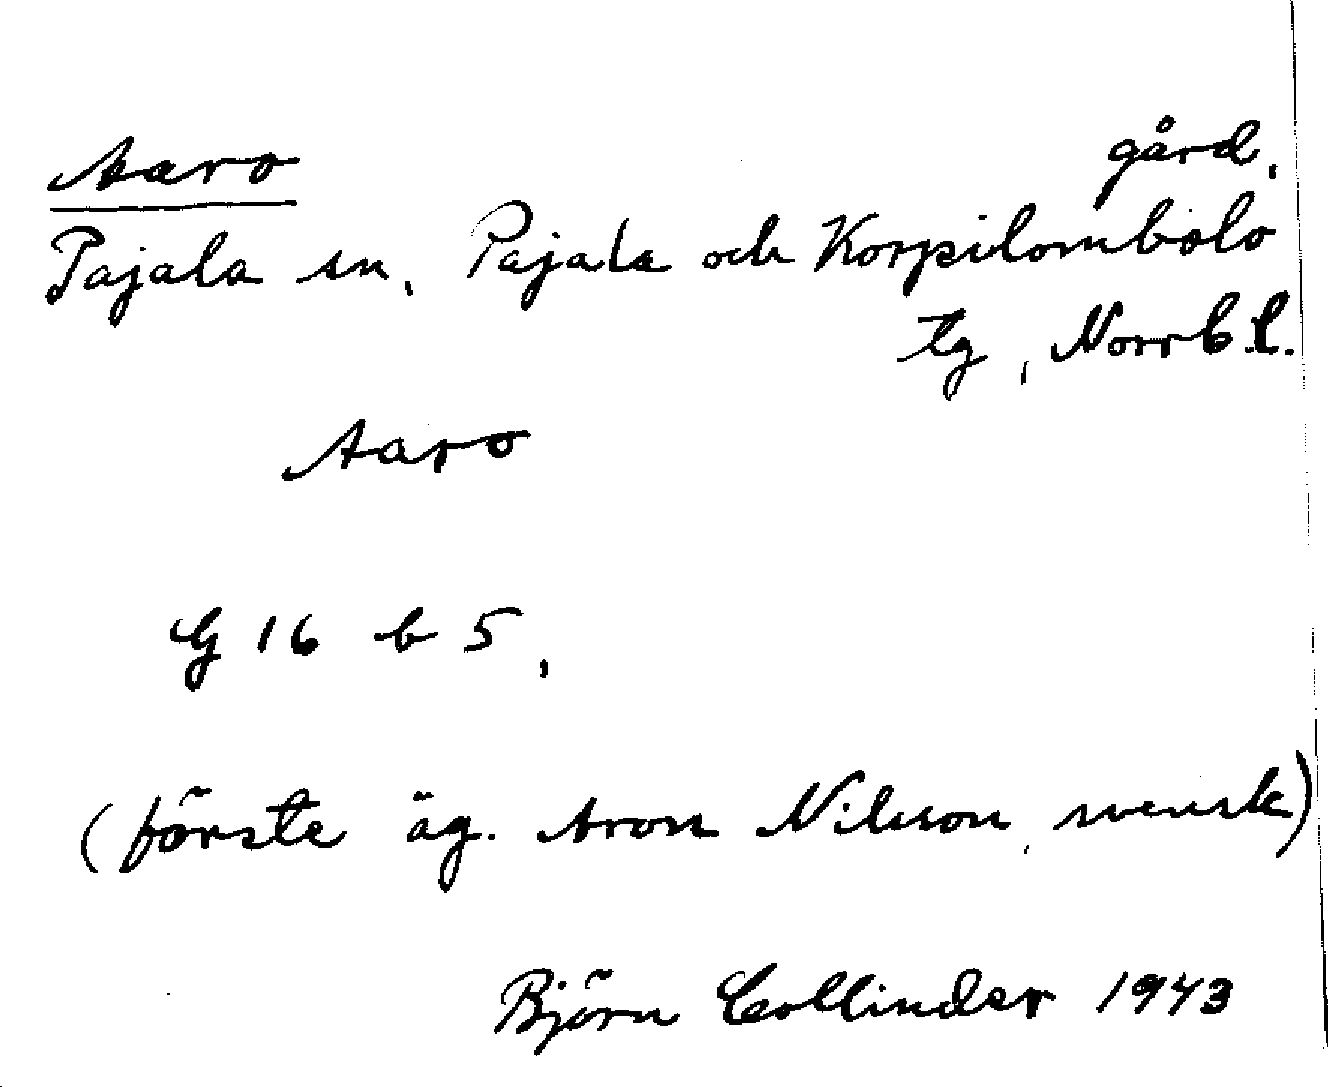 Aaro gård,
Pajala sn, Pajala och Korpilombolo
tg, Norrb.l.
Aaro
G 16 b 5,
(förste äg. Aron Nilsson, svensk)
Björn Collinder 1943